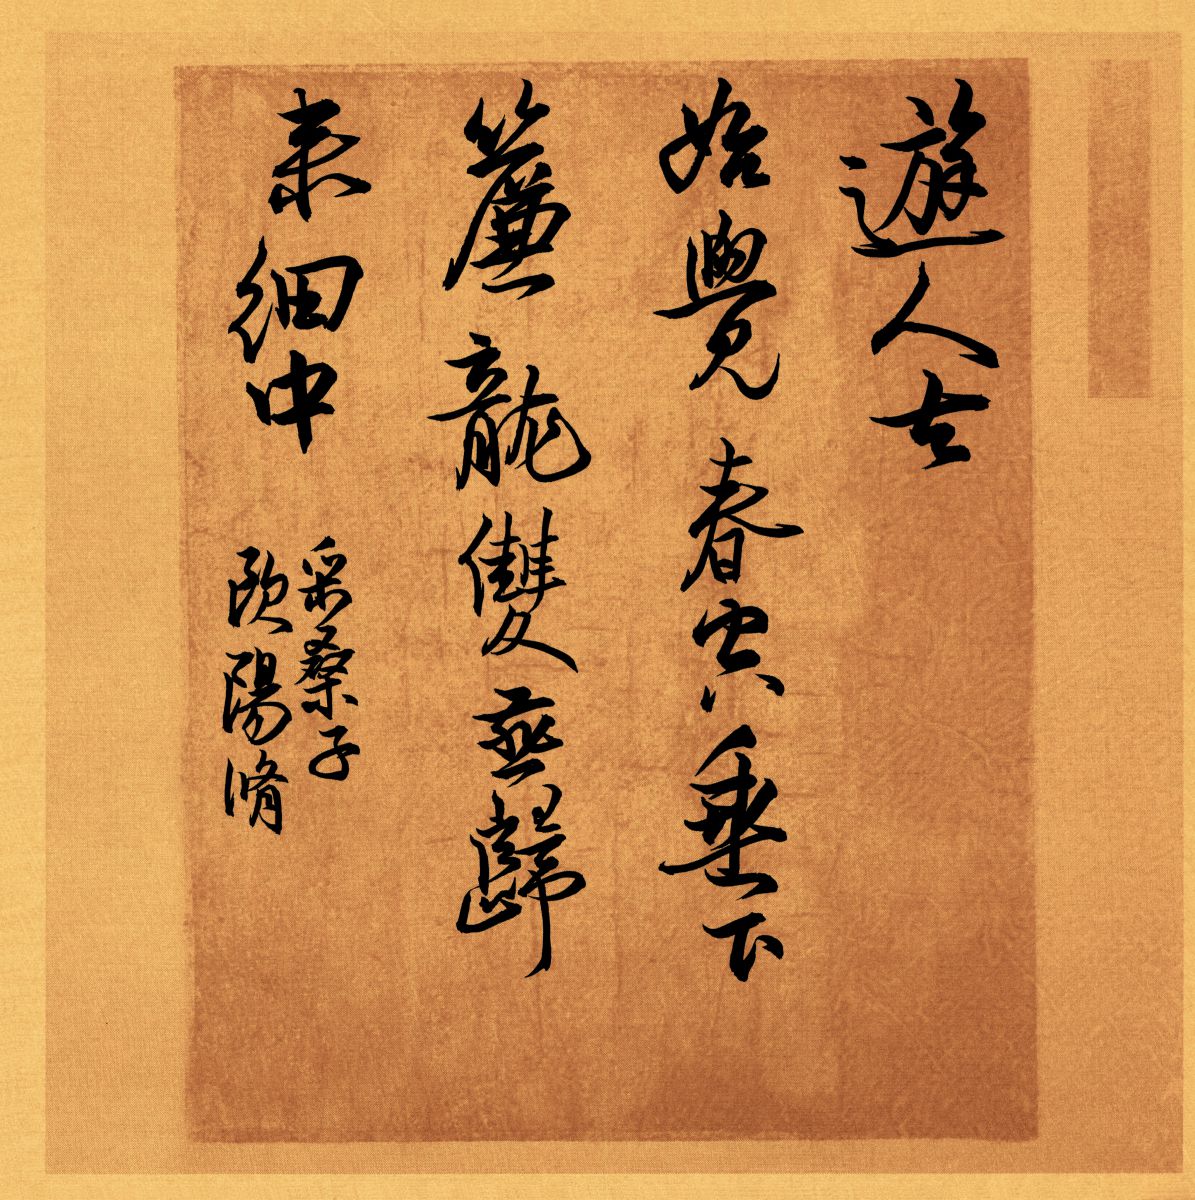 遊人去
始覺春空垂下
簾龍雙燕歸
来細中
采桑子
歐陽脩